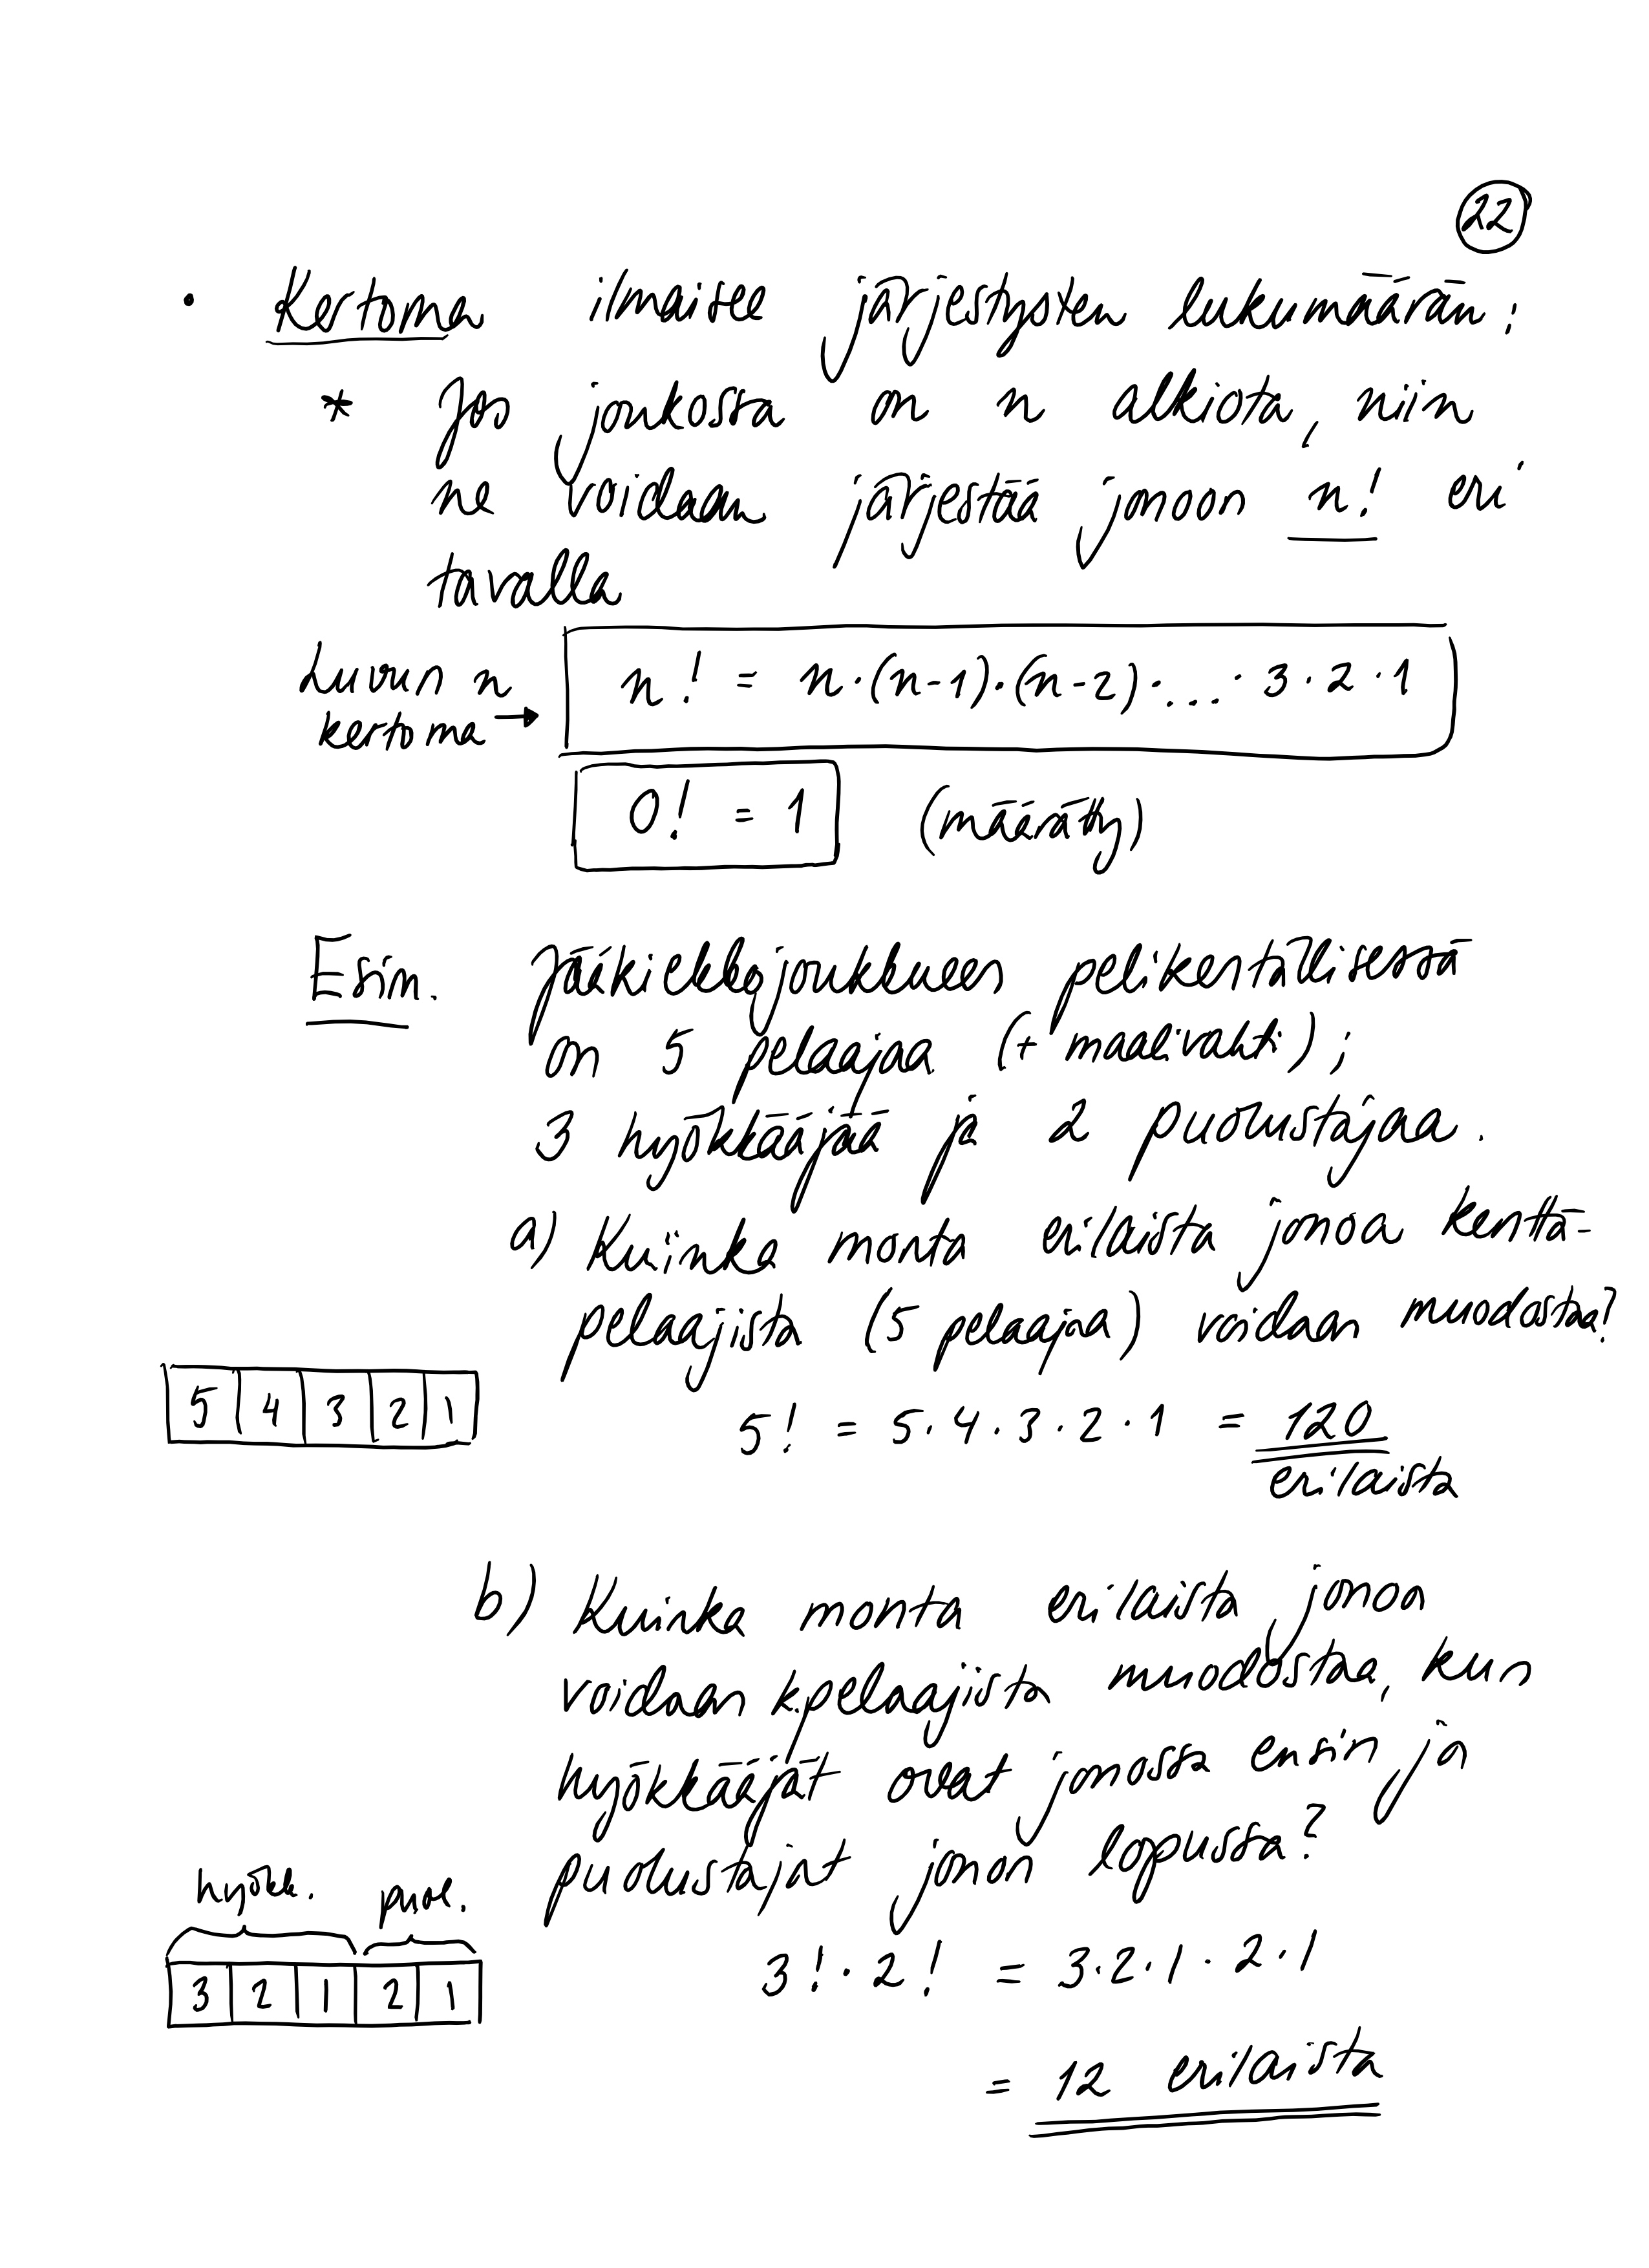 22
• Kertoma ilmaisee järjestysten lukumäärän:
* Jos joukossa on n alkiota, niin
ne voidaan järjestää jonoon n! eri
tavalla
Luvun n
kertoma →
n! = n·(n-1)·(n-2)·...·3·2·1
0! = 1 (määrätty)
Esim. Jääkiekkojoukkueen pelikentällisessä
on 5 pelaajaa (+ maalivahti);
3 hyökkääjää ja 2 puolustajaa.
a) Kuinka monta erilaista jonoa kenttä-
pelaajista (5 pelaajaa) voidaan muodostaa?
5 4 3 2 1
5! = 5·4·3·2·1 = 120
erilaista
b) Kuinka monta erilaista jonoa
voidaan k.pelaajista muodostaa, kun
hyökkääjät ovat jonossa ensin ja
puolustajat jonon lopussa?
hyökk. puol.
3 2 1 2 1
3!·2! = 3·2·1·2·1
= 12 erilaista